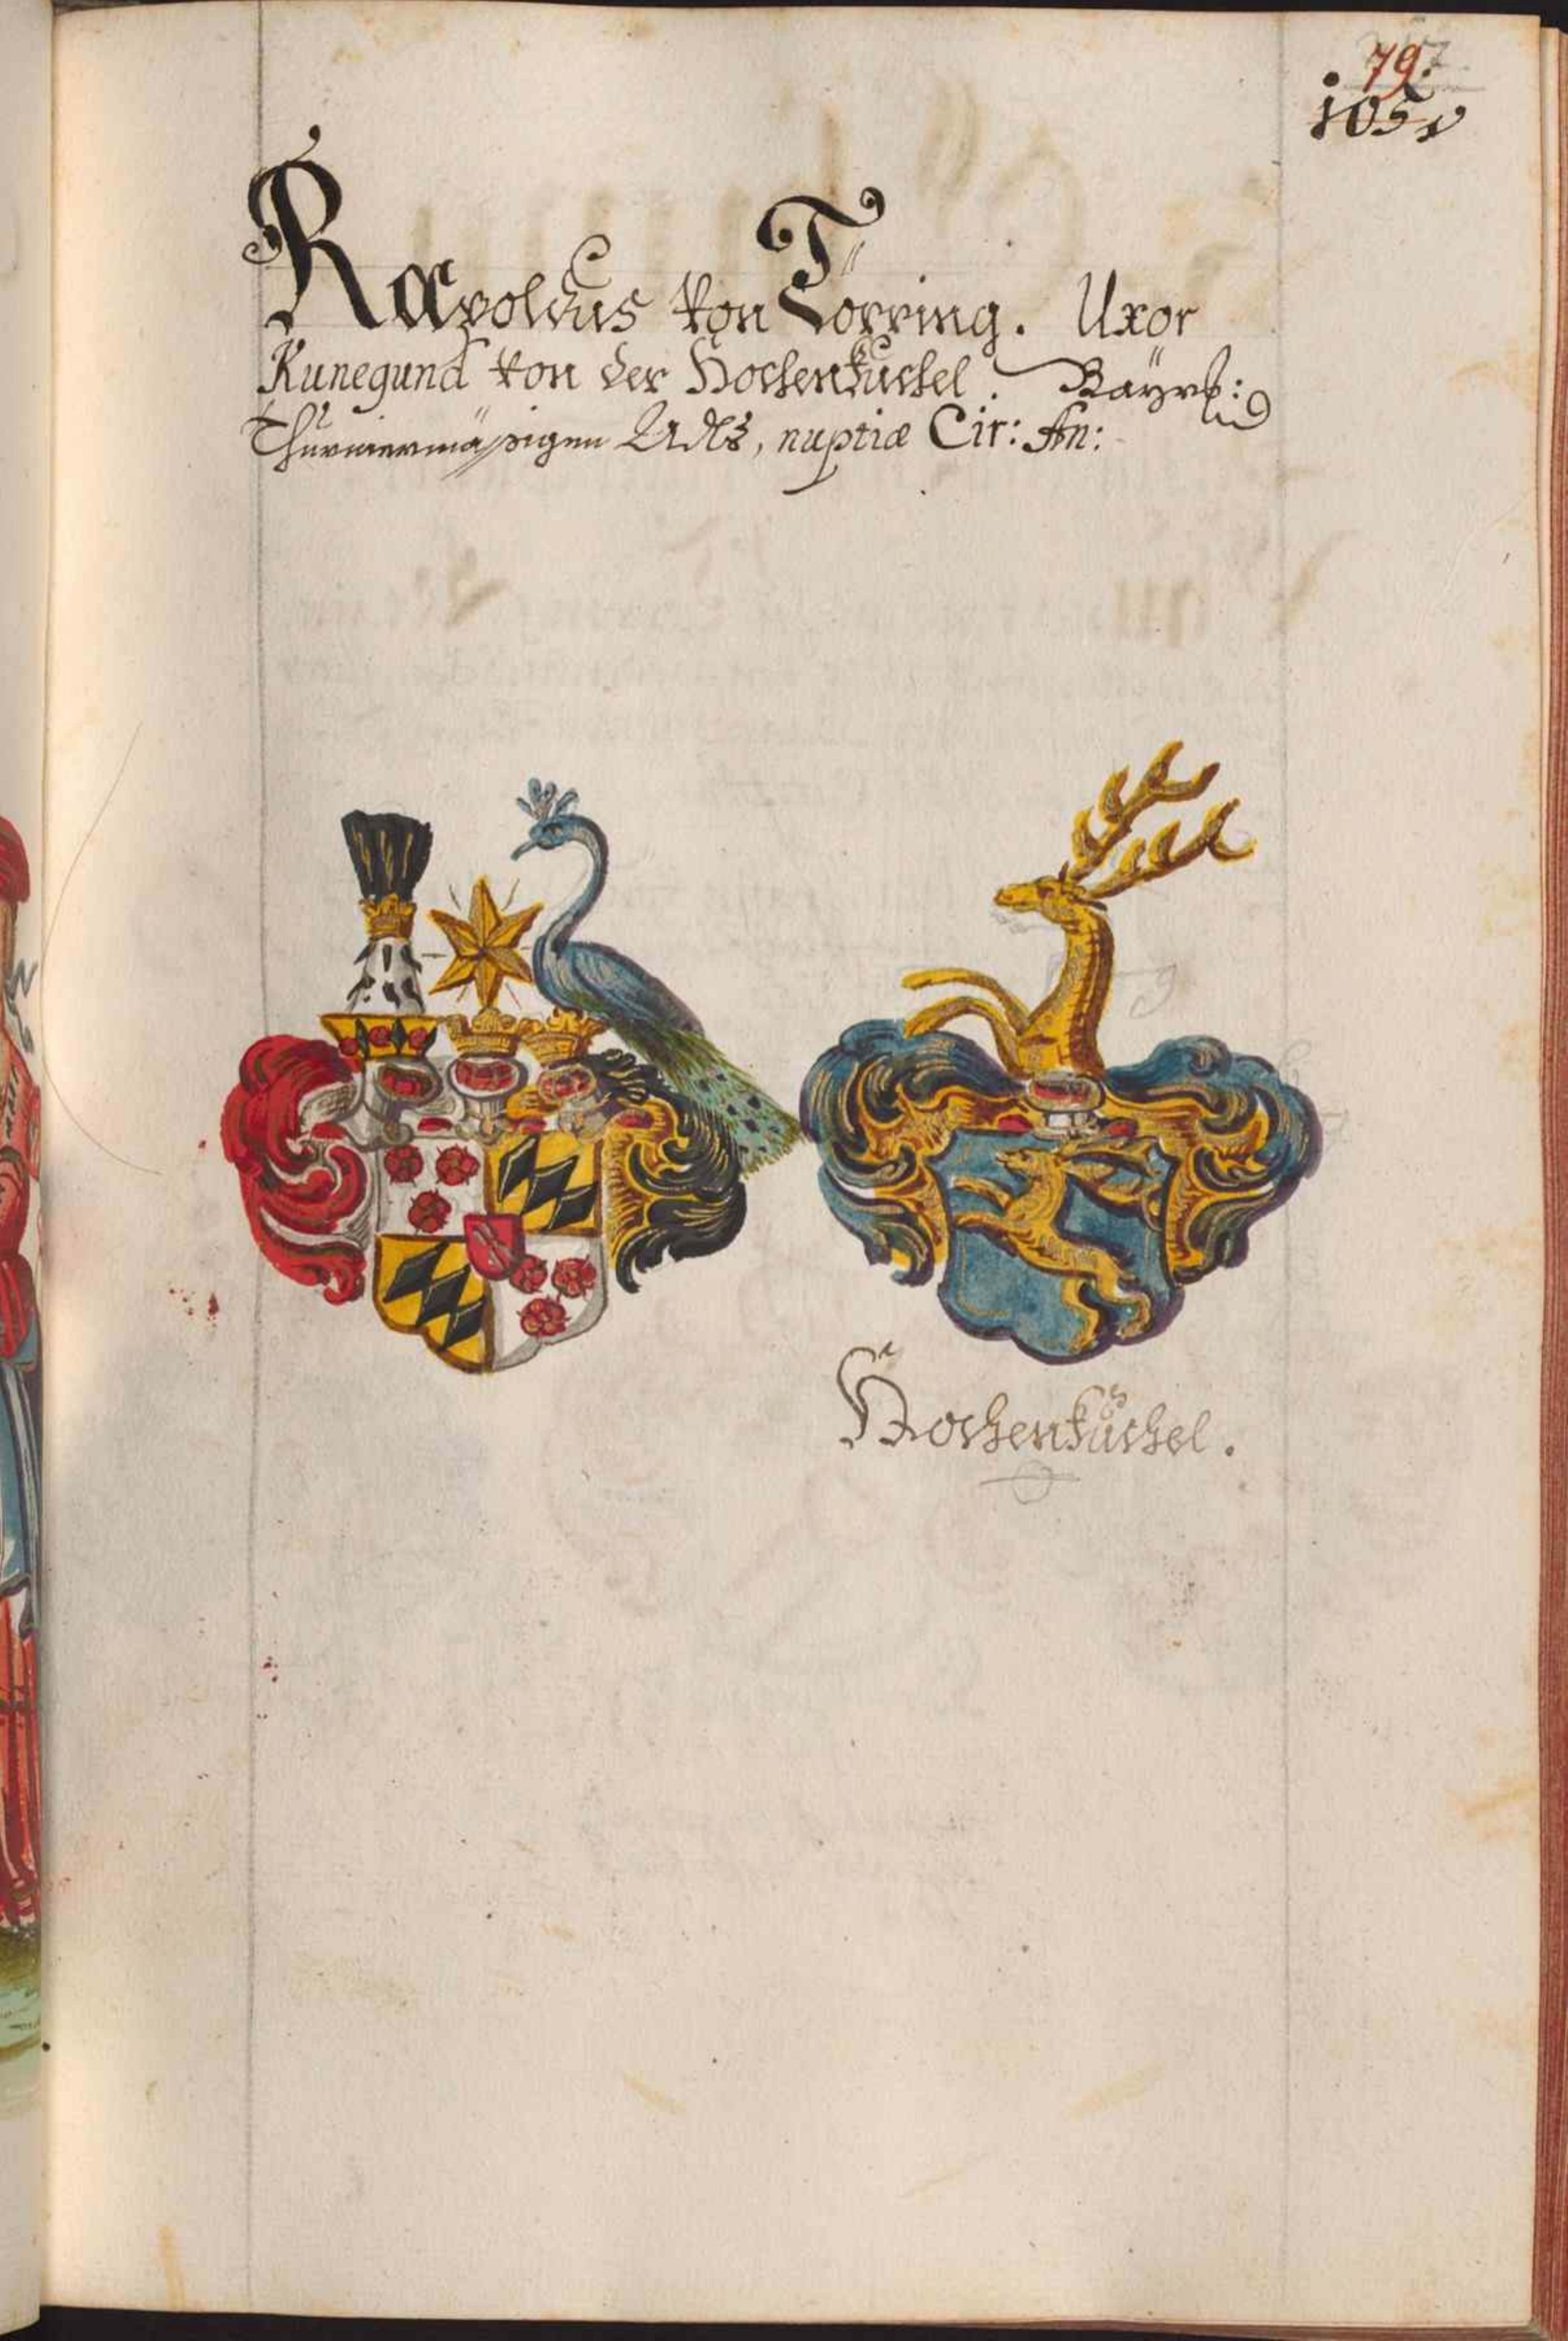 79.
1051
Rævoldus von Törring. Uxor
Kunegund von der Hochenkuchel. Bayrl:
Thurniermäßigen Adls, nuptiæ Cir: An:
Hochenkuchel.